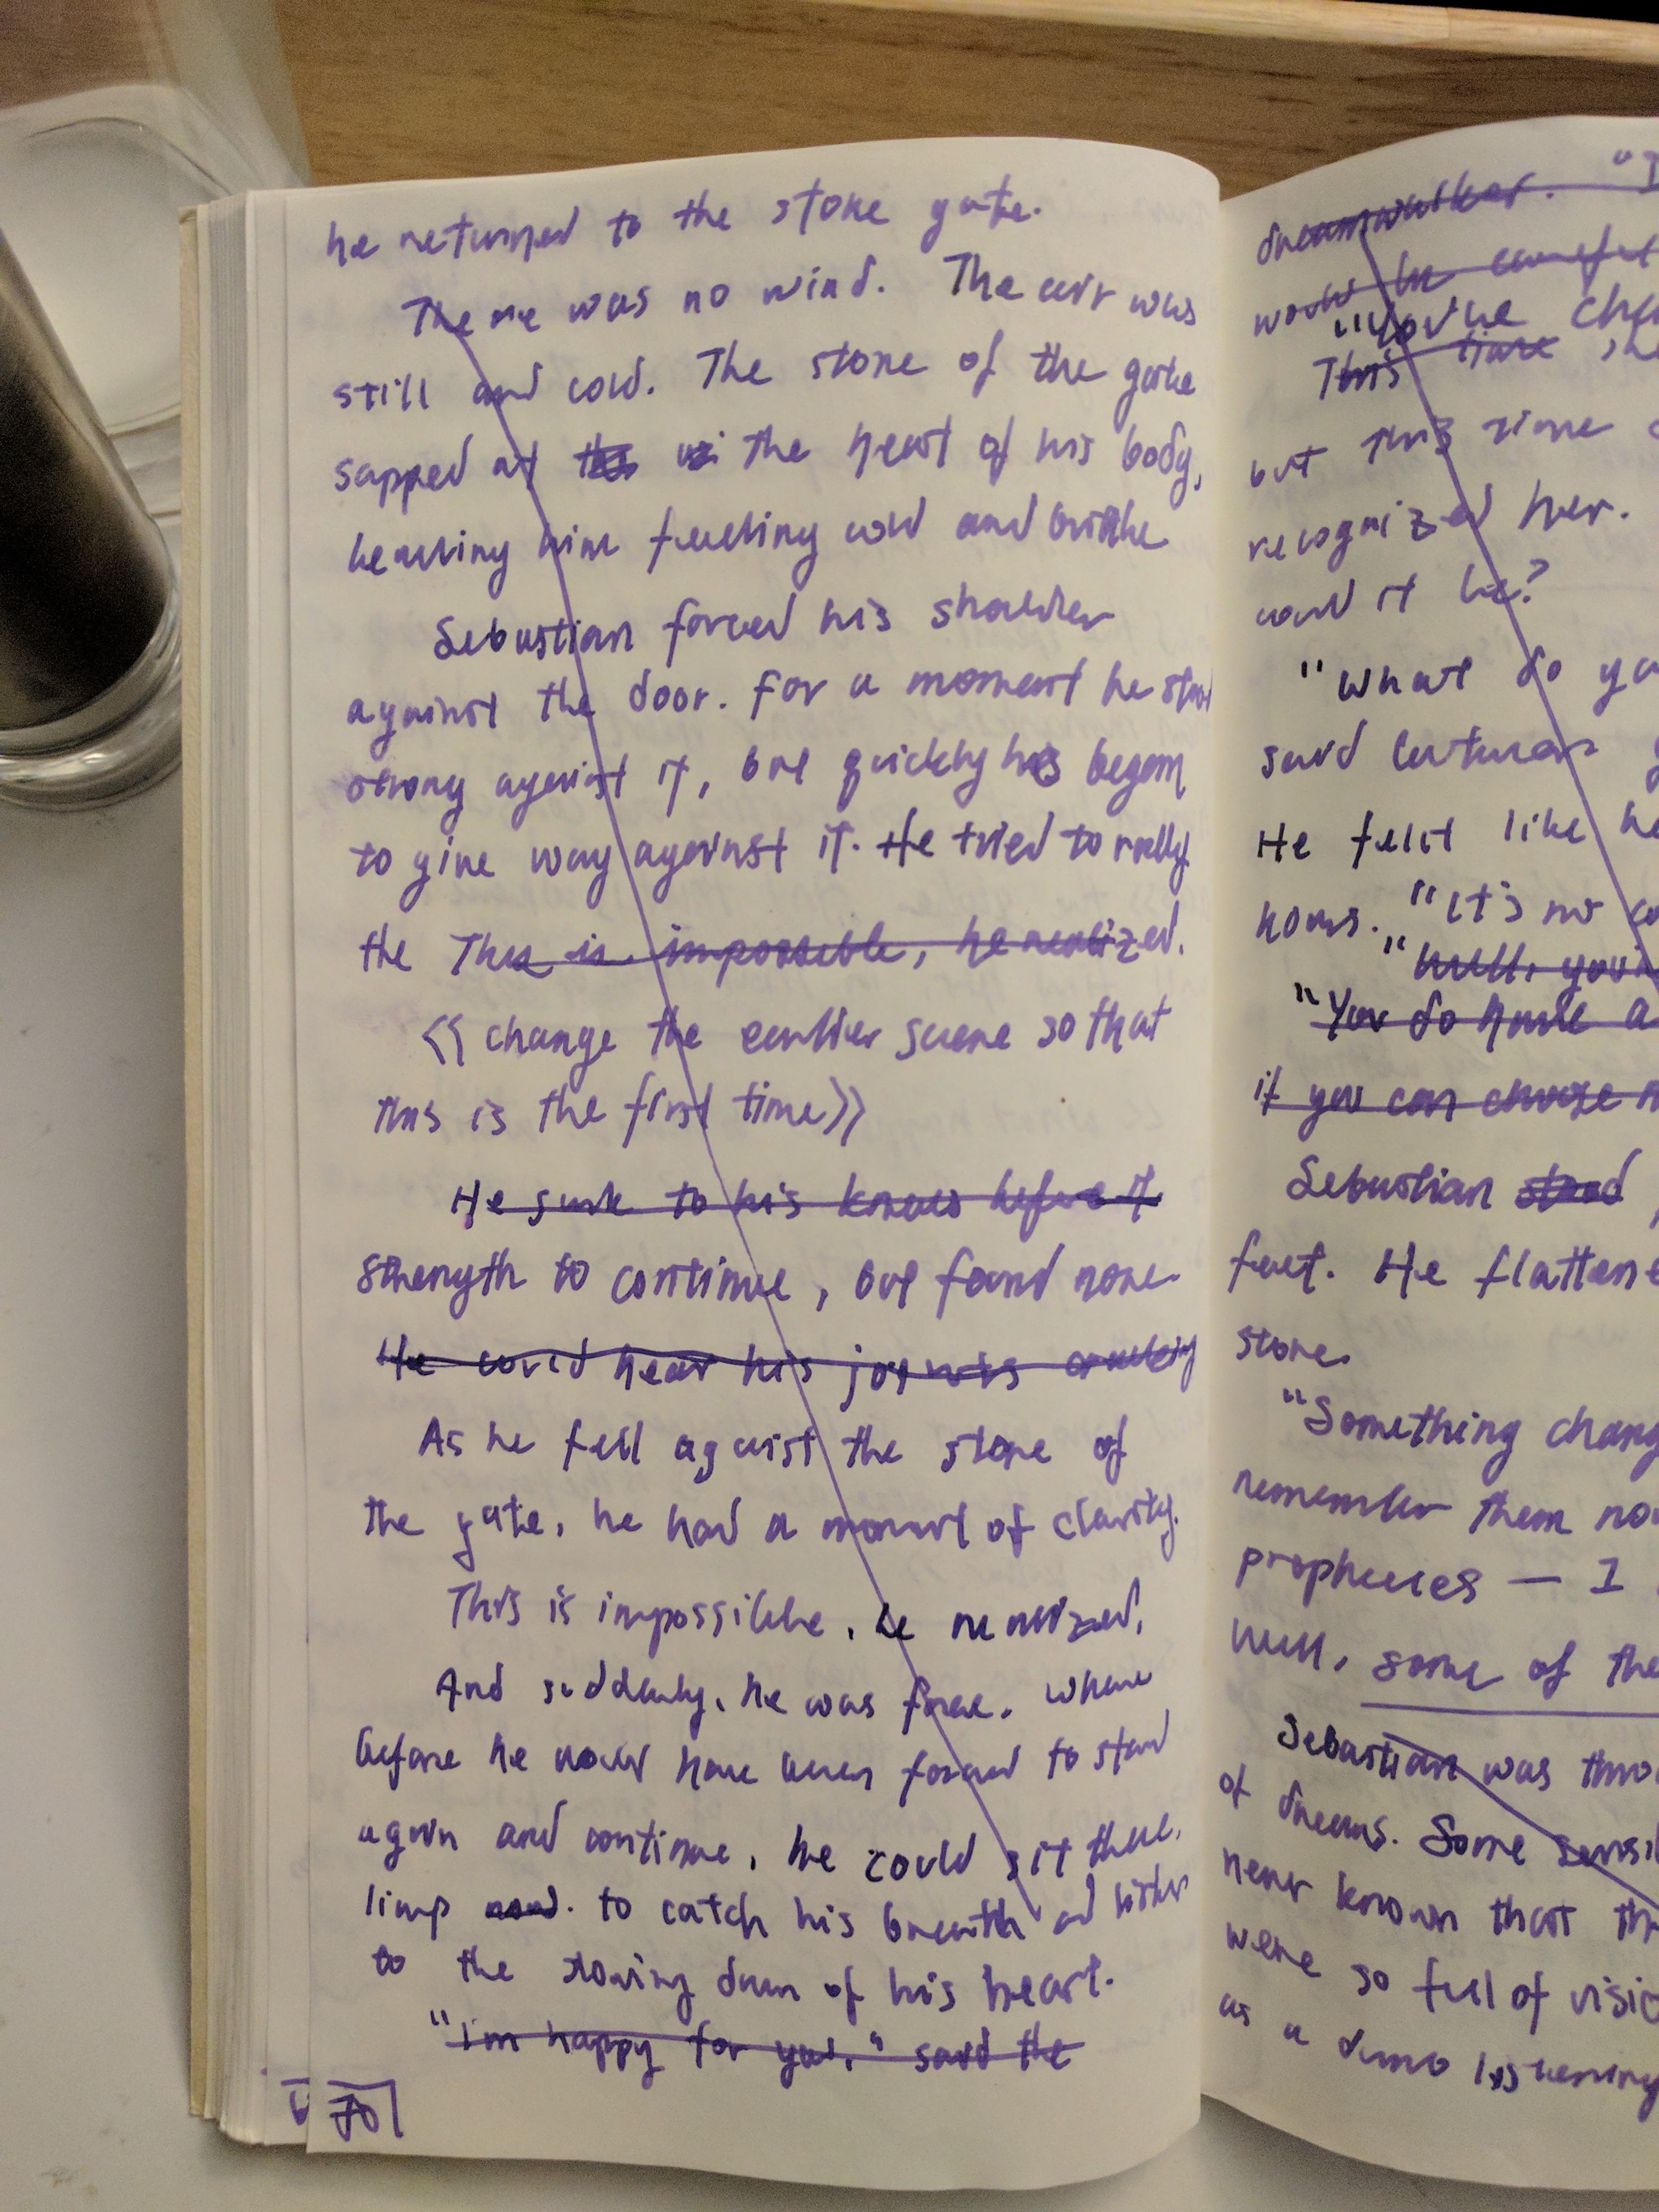 he returned to the stone gate.
There was no wind. The air was
still and cold. The stone of the gate
sapped at the the heat of his body,
leaving him feeling cold and brittle
Sebastian forced his shoulder
against the door. For a moment he stood
strong against it, but quickly he began
to give way against it. He tried to rally
the This is impossible, he realized.
<< change the earlier scene so that
this is the first time>>
He sunk to his knees before it
strength to continue, but found none.
He could hear his joints creaking
As he fell against the stone of
the gate, he had a moment of clarity.
This is impossible, he realized.
And suddenly, he was free. Where
before he would have been forced to stand
again and continue, he could sit there,
limp to catch his breath and listen
to the slowing drum of his heart.
"I'm happy for you," said the
70
dreamwalker. "I
would be careful
"You've
This time she
but this time
recognized her.
could it be?
"What do
said
He felt like he
hours. "It's no
"Well, you
"You do have a
if you can choose
Sebastian stood
feet. He
stone.
"Something
remember them
prophecies — I
well, some of the
Sebastian was
of dreams. Some
never known that
were so full of
as a listening